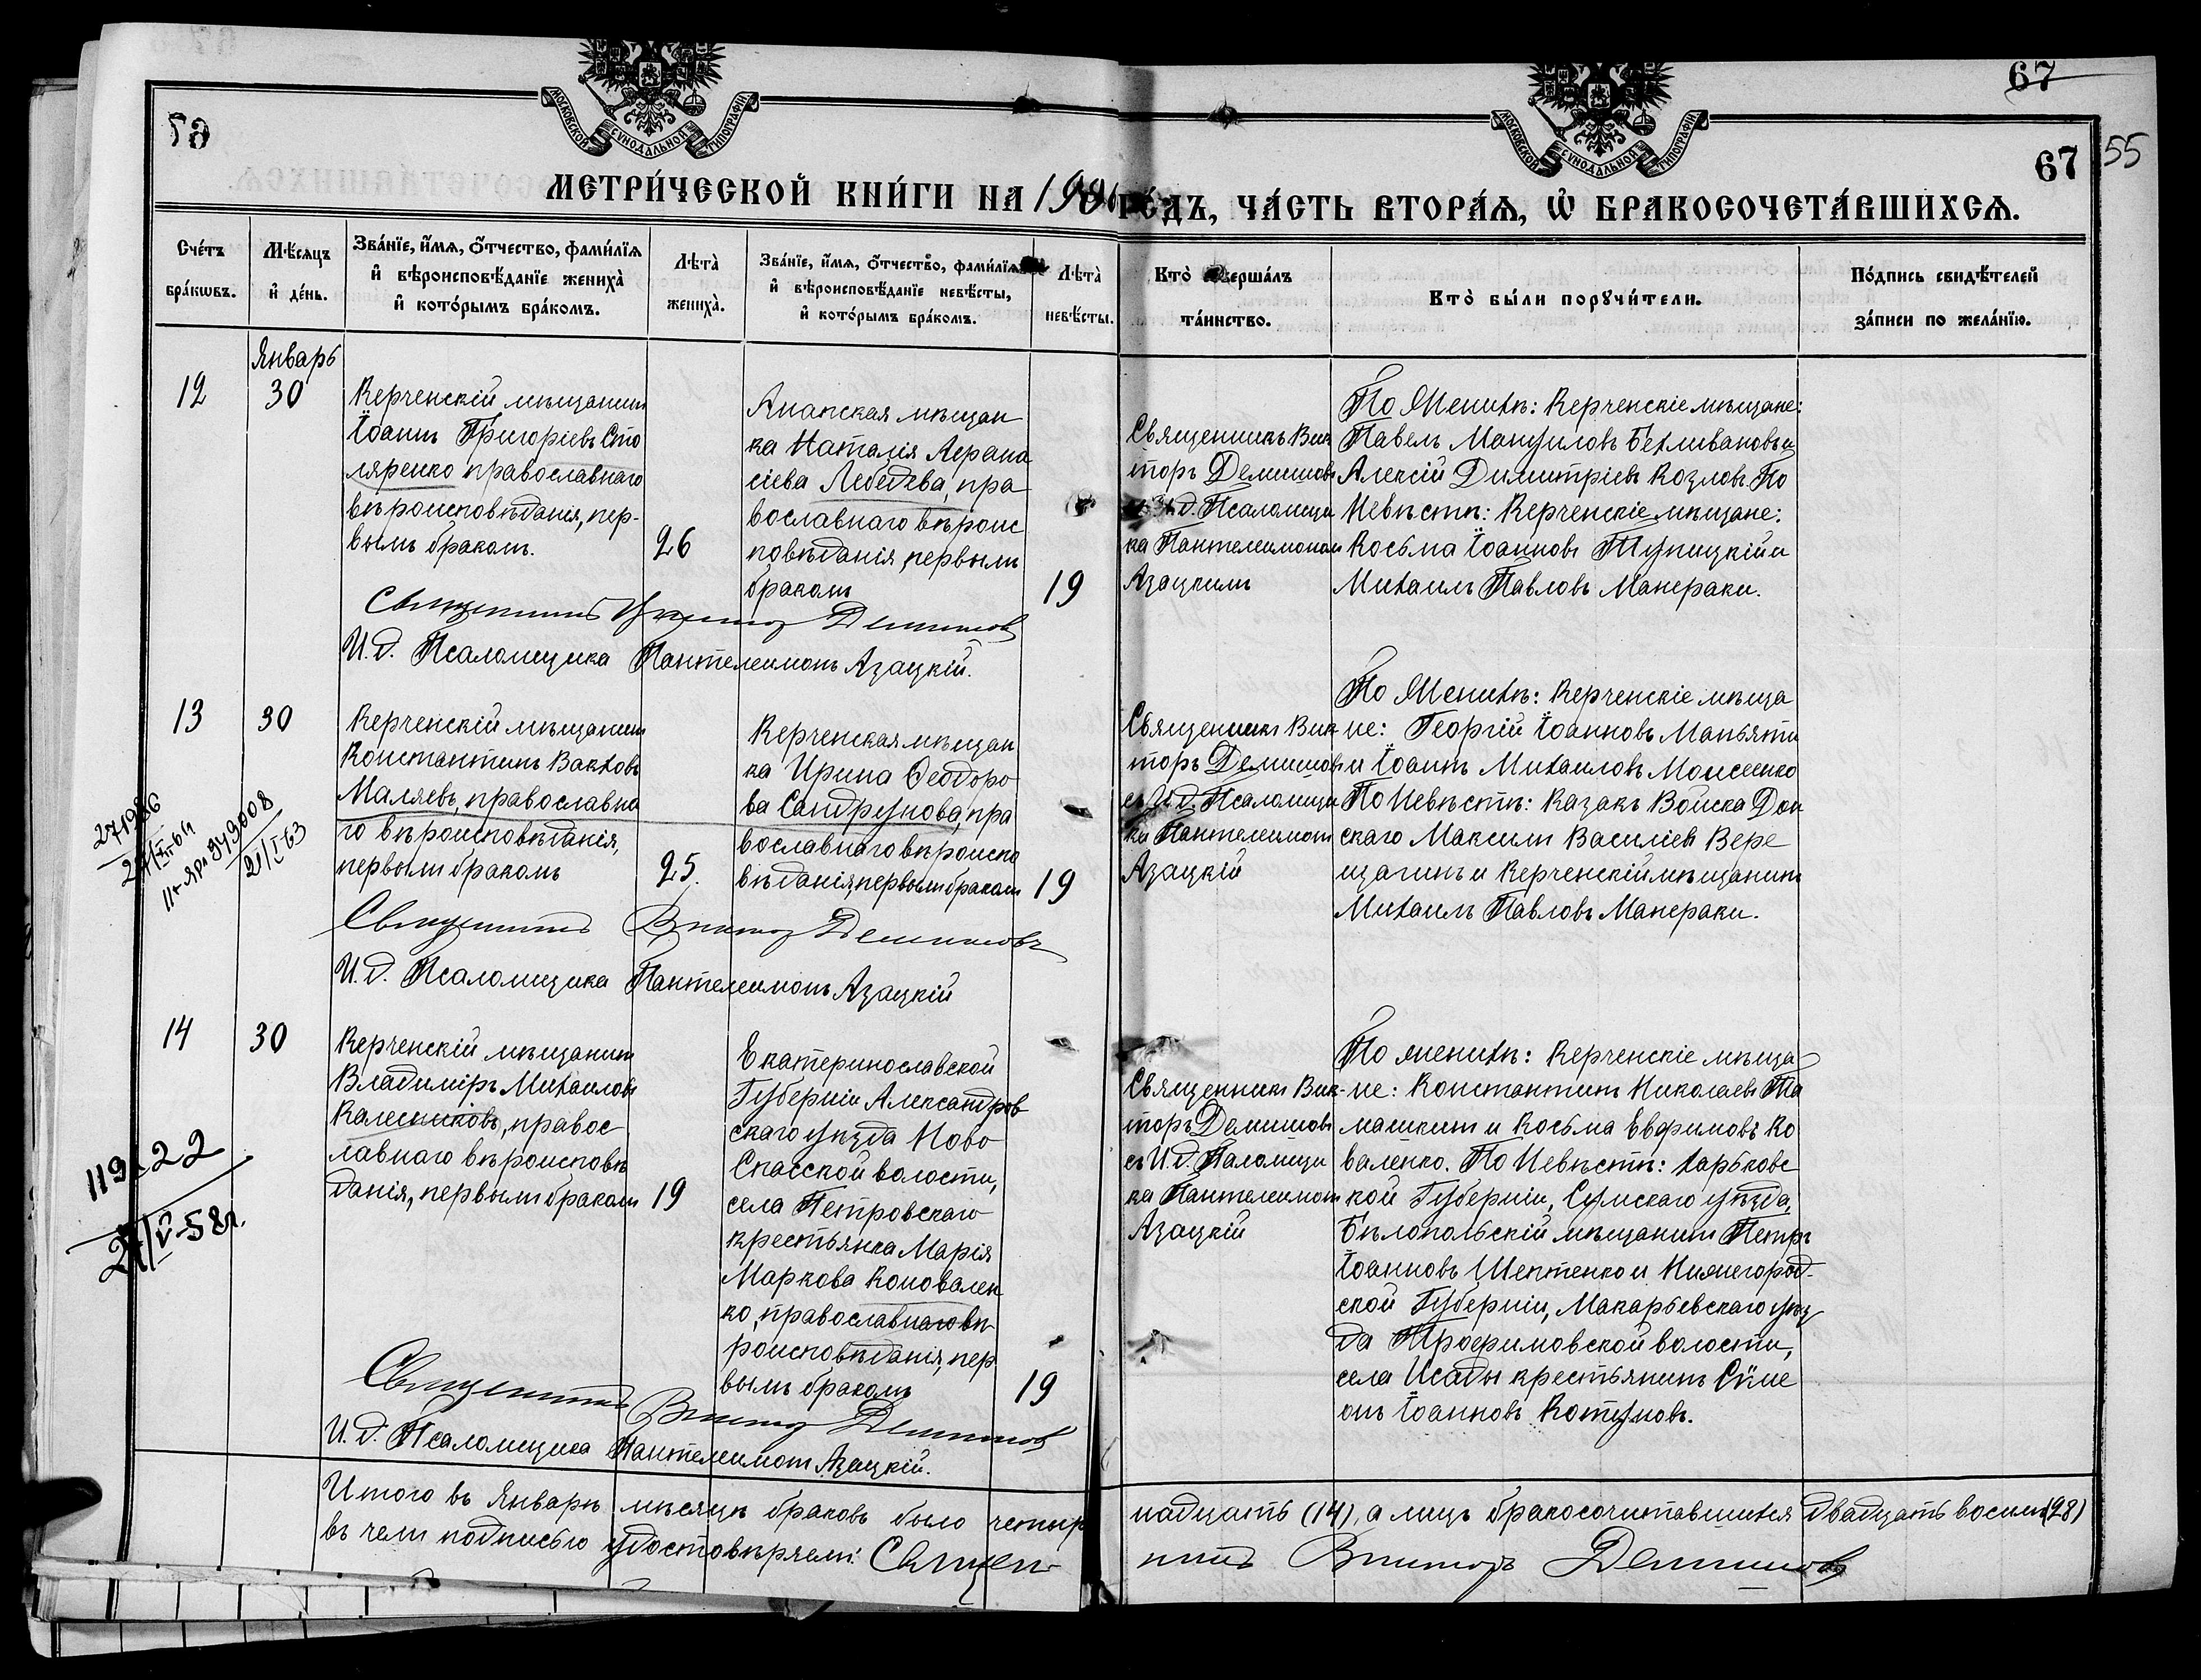 67
67
55
МОСКОВСКОЙ СѴНОДАЛЬНОЙ ТИПОГРАФІИ
МОСКОВСКОЙ СѴНОДАЛЬНОЙ ТИПОГРАФІИ
МЕТРИ́ЧЕСКОЙ КНИ́ГИ НА 1906 ГО́ДЪ, ЧА́СТЬ ВТОРА́Ѧ, Ѡ БРАКОСОЧЕТА́ВШИХСѦ.
Сче́тъ
бра́кѡвъ.
Мѣ́сѧцъ
и҆ де́нь.
Зва́нїе, и҆́мѧ, ѻ҆́тчество, фами́лїѧ
и҆ вѣроисповѣ́данїе жениха̀
и҆ кото́рымъ бра́комъ.
Лѣта̀
жениха̀.
Зва́нїе, и҆́мѧ, ѻ҆́тчество, фами́лїѧ
и҆ вѣроисповѣ́данїе невѣ́сты,
и҆ кото́рымъ бра́комъ.
Лѣта̀
невѣ́сты.
Кто̀ соверша́лъ
та́инство.
Кто̀ бы́ли порꙋчи́тели.
По́дпись свидѣ́телей
за́писи по жела́нїю.
Январь
12
30
Керченскій мѣщанинъ
Іоаннъ Григоріевъ Сто
ляренко православнаго
вѣроисповѣданія, пер-
вымъ бракомъ.
26
Анапская мѣщан
ка Наталія Аѳана
сіева Лебедева, пра
вославнаго вѣроис
повѣданія, первымъ
бракомъ
19
Священникъ Вик
торъ Демишовъ
съ И.д. Псаломщи
ка Пантелеимономъ
Азацкимъ
По Женихѣ: Керченскіе мѣщане:
Павелъ Мануиловъ Бехливановъ и
Алексій Димитріевъ Козловъ. По
Невѣстѣ: Керченскіе мѣщане:
Косьма Іоанновъ Тупицкій и
Михаилъ Павловъ Манераки.
Священникъ Викторъ Демишовъ
И.д. Псаломщика Пантелеимонъ Азацкій.
13
30
Керченскій мѣщанинъ
Константинъ Ваковъ
Маляевъ, православна
го вѣроисповѣданія,
первымъ бракомъ
25.
Керченская мѣщан
ка Ирина Ѳеодоро
ва Сандрунова, пра
вославнаго вѣроиспо
вѣданія, первымъ бракомъ
19
Священникъ Вик-
торъ Демишовъ
съ И.д. Псаломщи
ка Пантелеимонъ
Азацкій
По Женихѣ: Керченскіе мѣща
не: Георгій Іоанновъ Маньяти
и Іоаннъ Михаиловъ Моисеенко
По Невѣстѣ: Казакъ Войска Дон
скаго Максимъ Василіевъ Вере
щагинъ и Керченскій мѣщанинъ
Михаилъ Павловъ Манераки.
Священникъ Викторъ Демишовъ
И.д. Псаломщика Пантелеимонъ Азацкій
349008
21/I 63
14
30
Керченскій мѣщанинъ
Владиміръ Михаиловъ
Калесниковъ, правос
лавнаго вѣроисповѣ
данія, первымъ бракомъ
19
Екатеринославской
Губерніи Александров
скаго уѣзда Ново
Спасской волости,
села Петровскаго
крестьянка Марія
Маркова Коновален
ко, православнаго вѣ
роисповѣданія, пер
вымъ бракомъ
19
Священникъ Вик-
торъ Демишовъ
съ И.д. Паломщи
ка Пантелеимонъ
Азацкій
По женихѣ: Керченскіе мѣща
не: Константинъ Николаевъ Та
машкинъ и Косьма Евѳимовъ Ко
валенко. По Невѣстѣ: Харьковс
кой Губерніи, Сумскаго уѣзда,
Бѣлопольскій мѣщанинъ Петръ
Іоанновъ Шептенко и Нижегород-
ской Губерніи, Макарьевскаго уѣз
да Троѳимовской волости,
села Исады крестьянинъ Сѵме
онъ Іоанновъ Котуновъ.
Священникъ Викторъ Демишовъ
И.д. Псаломщика Пантелеимонъ Азацкій.
21/V-58г.
Итого въ Январѣ мѣсяцѣ браковъ было четыр надцать (14), а лицъ бракосочитавшихся двадцать восемь (28)
въ чемъ подписью удостовѣряемъ: Священ никъ Викторъ Демишовъ